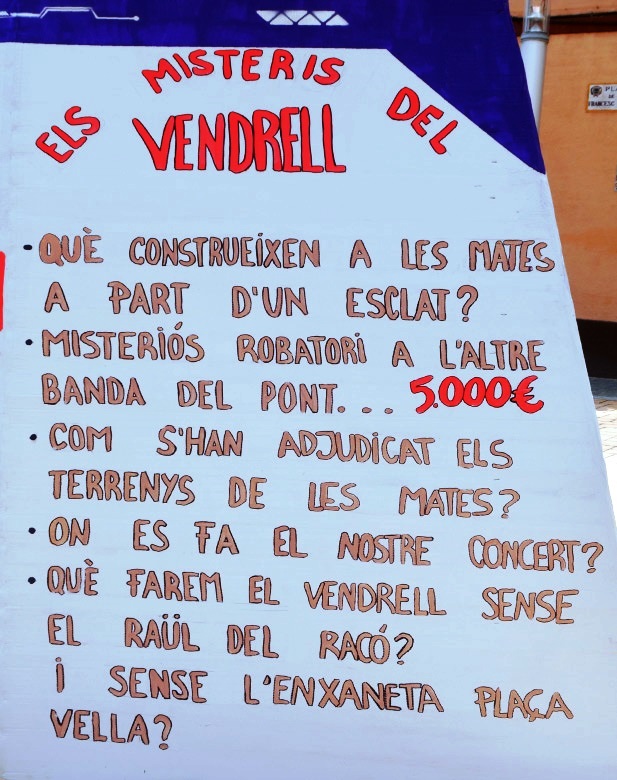 ELS MISTERIS DEL
VENDRELL
• QUÈ CONSTRUEIXEN A LES MATES
A PART D'UN ESCLAT?
• MISTERIÓS ROBATORI A L'ALTRE
BANDA DEL PONT... 5.000€
• COM S'HAN ADJUDICAT ELS
TERRENYS DE LES MATES?
• ON ES FA EL NOSTRE CONCERT?
• QUÈ FAREM EL VENDRELL SENSE
EL RAÜL DEL RACÓ?
I SENSE L'ENXANETA PLAÇA
VELLA?